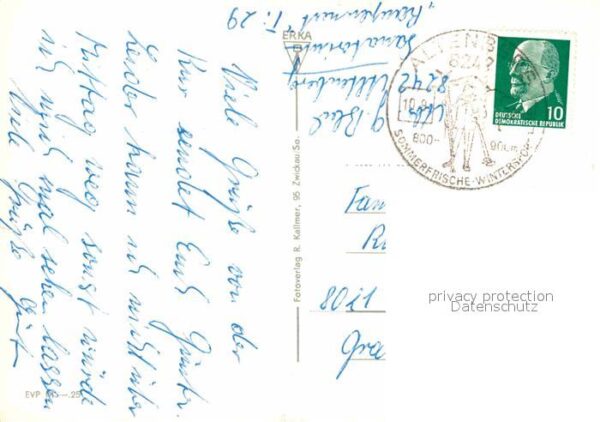 Viele Grüße von der
Kur sendet Euch Günter.
Leider kann ich nicht über
Mittag weg sonst würde
ich mich mal sehen lassen
Viele Grüße
Günter
EVP M —.25
Fotoverlag R. Kallmer, 95 Zwickau Sa.
ERKA
8242 Altenberg
Sanatorium
T: 29
ALTENB
8242
10.8
800-
900m
SOMMERFRISCHE-WINTERSPOR
DEUTSCHE
DEMOKRATISCHE REPUBLIK
10
Fam
8011
privacy protection
Datenschutz